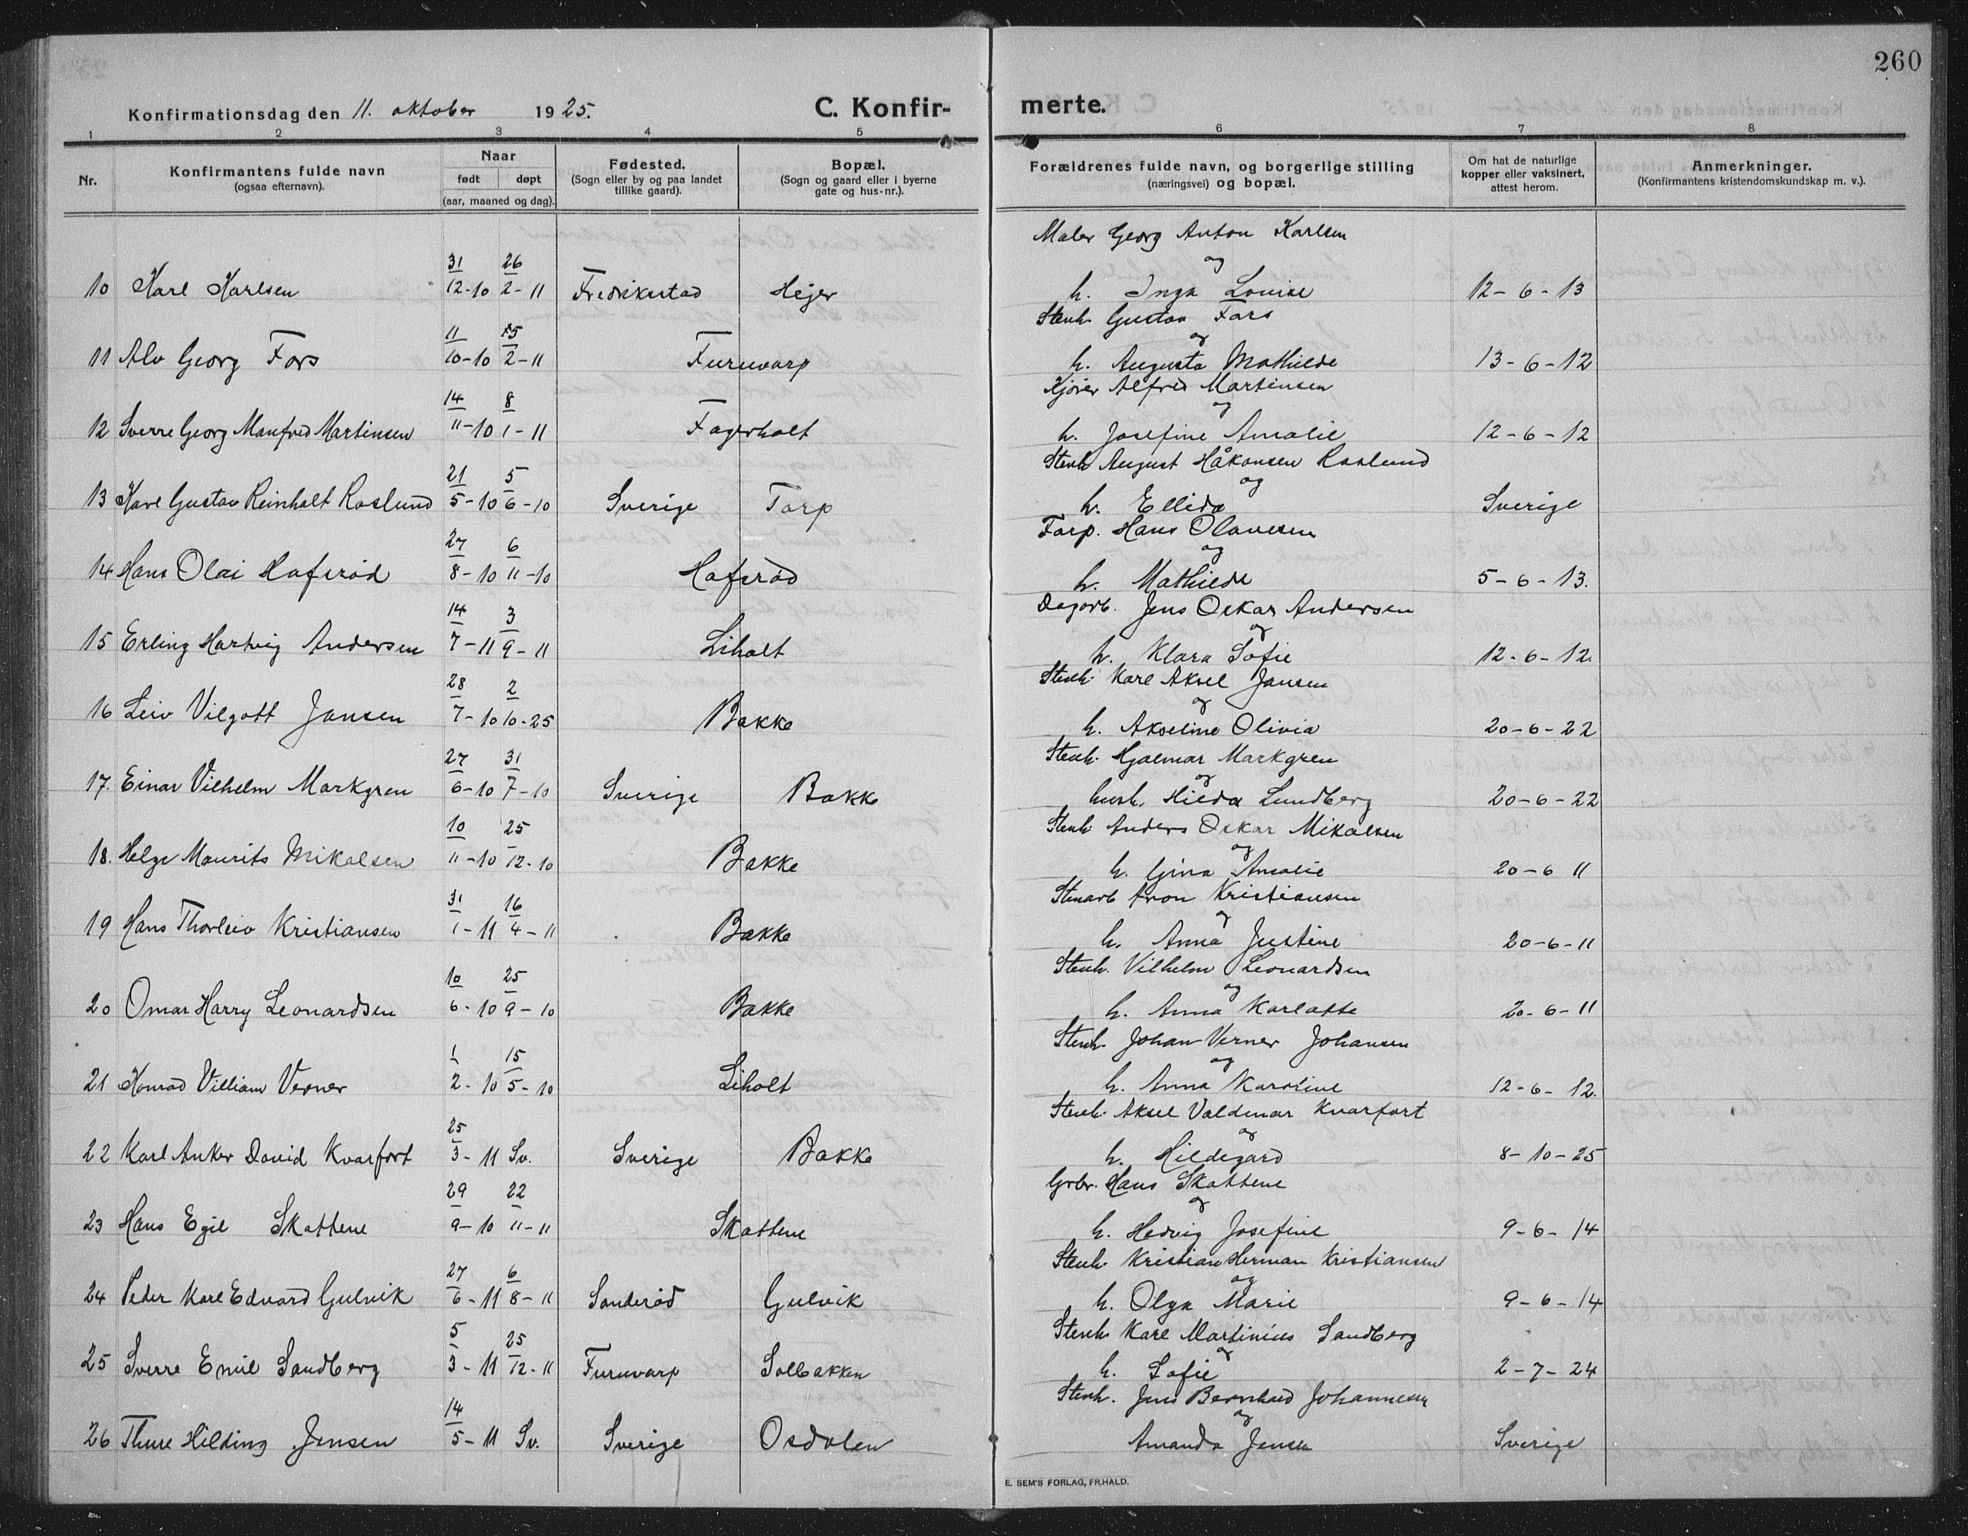 260
Konfirmationsdag den 11. oktober 1925. C. Konfir- merte.
1 2 3 4 5 6 7 8
Nr. Konfirmantens fulde navn (ogsaa efternavn). Naar født døpt (aar, maaned og dag). Fødested. (Sogn eller by og paa landet tillike gaard). Bopæl. (Sogn og gaard eller i byerne gate og hus-nr.). Forældrenes fulde navn, og borgerlige stilling (næringsvei) og bopæl. Om hat de naturlige kopper eller vaksinert, attest herom. Anmerkninger. (Konfirmantens kristendomskundskap m. v.).
Maler Georg Anton Karlsen
og
10 Karl Karlsen 31/12-10 26/2-11 Fredrikstad Hejer h. Inga Lovise 12-6-13
Stenh. Gustav Fors
og
11 Alv Georg Fors 11/10-10 /2-11 Furuvarp h. Augusta Mathilde 13-6-12
Kjører Alfred Martinsen
og
12 Sverre Georg Manfred Martinsen 14/11-10 8/1-11 Fagerholt h. Josefine Amalie 12-6-12
Stenh. August Håkansen Roslund
og
13 Karl Gustav Reinholt Roslund 21/5-10 5/6-10 Sverige Torp h. Ellida Sverige
Forp. Hans Olavesen
og
14 Hans Olai Hafsrød 27/8-10 6/11-10 Hafsrød h. Mathilde 5-6-13.
Dagarb. Jens Oskar Andersen
og
15 Erling Hartvig Andersen 14/7-11 3/9-11 Liholt h. Klara Sofie 12-6-12.
Stenh. Karl Aksel Jansen
og
16 Leiv Vilgott Jansen 28/7-10 2/10-25 Bakke h. Akseline Olivia 20-6-22
Stenh. Hjalmar Markgren
og
17. Einar Vilhelm Markgren 27/6-10 31/7-10 Sverige Bakke hush. Hilda Lundberg 20-6-22
Stenh. Anders Oskar Mikalsen
og
18. Helge Maurits Mikalsen 10/11-10 25/12-10 Bakke h. Gina Amalie 20-6 11
Stenarb. Aron Kristiansen
og
19 Hans Thorleiv Kristiansen 31/1-11 16/4-11 Bakke h. Anna Justine 20-6-11
Stenh. Vilhelm Leonardsen
og
20 Omar Harry Leonardsen 10/6-10 25/9-10 Bakke h. Anna Karlotte 20-6-11
Stenh. Johan Verner Johansen
og
21 Konrad Villiam Verner 1/2-10 15/5-10 Liholt h. Anna Karoline 12-6-12.
Stenh. Aksel Valdemar Kvarfort
og
22 Karl Anker David Kvarfort 25/3-11 Sv. Sverige Bakke h. Hildegard 8-10-25
Grbr. Hans Skattene
og
23 Hans Egil Skattene 29/9-10 22/11-11 Skattene h. Hedvig Josefine 9-6-14
Stenh. Kristian Herman Kristiansen
og
24 Peder Karl Edvard Gulvik 27/6-11 6/8-11 Sanderød Gulvik h. Olga Marie 9-6-14
Stenh. Karl Martinius Sandberg
og
25 Sverre Emil Sandberg 5/3-11 25/12-11 Furuvarp Solbakken h. Sofie 2-7-24
Stenh. Jens Bernhard Johannesen
og
26 Thure Hilding Jensen 14/5-11 Sv. Sverige Osdalen Amanda Jensen Sverige
E. SEM'S FORLAG, FR.HALD.